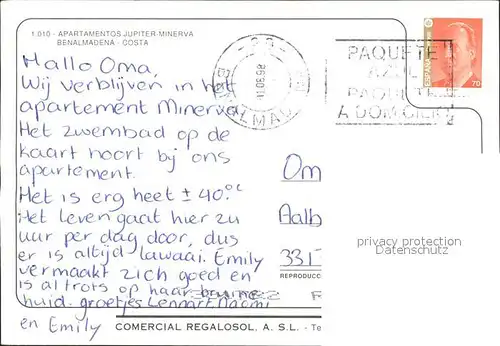 1.010 - APARTAMENTOS JUPITER-MINERVA
BENALMADENA - COSTA
Hallo Oma,
Wij verblijven in het
apartement Minerva
Het zwembad op de
kaart hoort bij ons
apartement.
Het is erg heet ± 40.°C
Het leven gaat hier 24
uur per dag door, dus
er is altijd lawaai. Emily
vermaakt zich goed en
is al trots op haar bruine
huid. groetjes Lennart, Naomi
en Emily
COMERCIAL REGALOSOL, A. S.L. - Te
PAQUETE
AZUL
PAQUETE
A DOMICILIO
ESPAÑA
70
Om
Aalb
331
REPRODUCC
privacy protection
Datenschutz